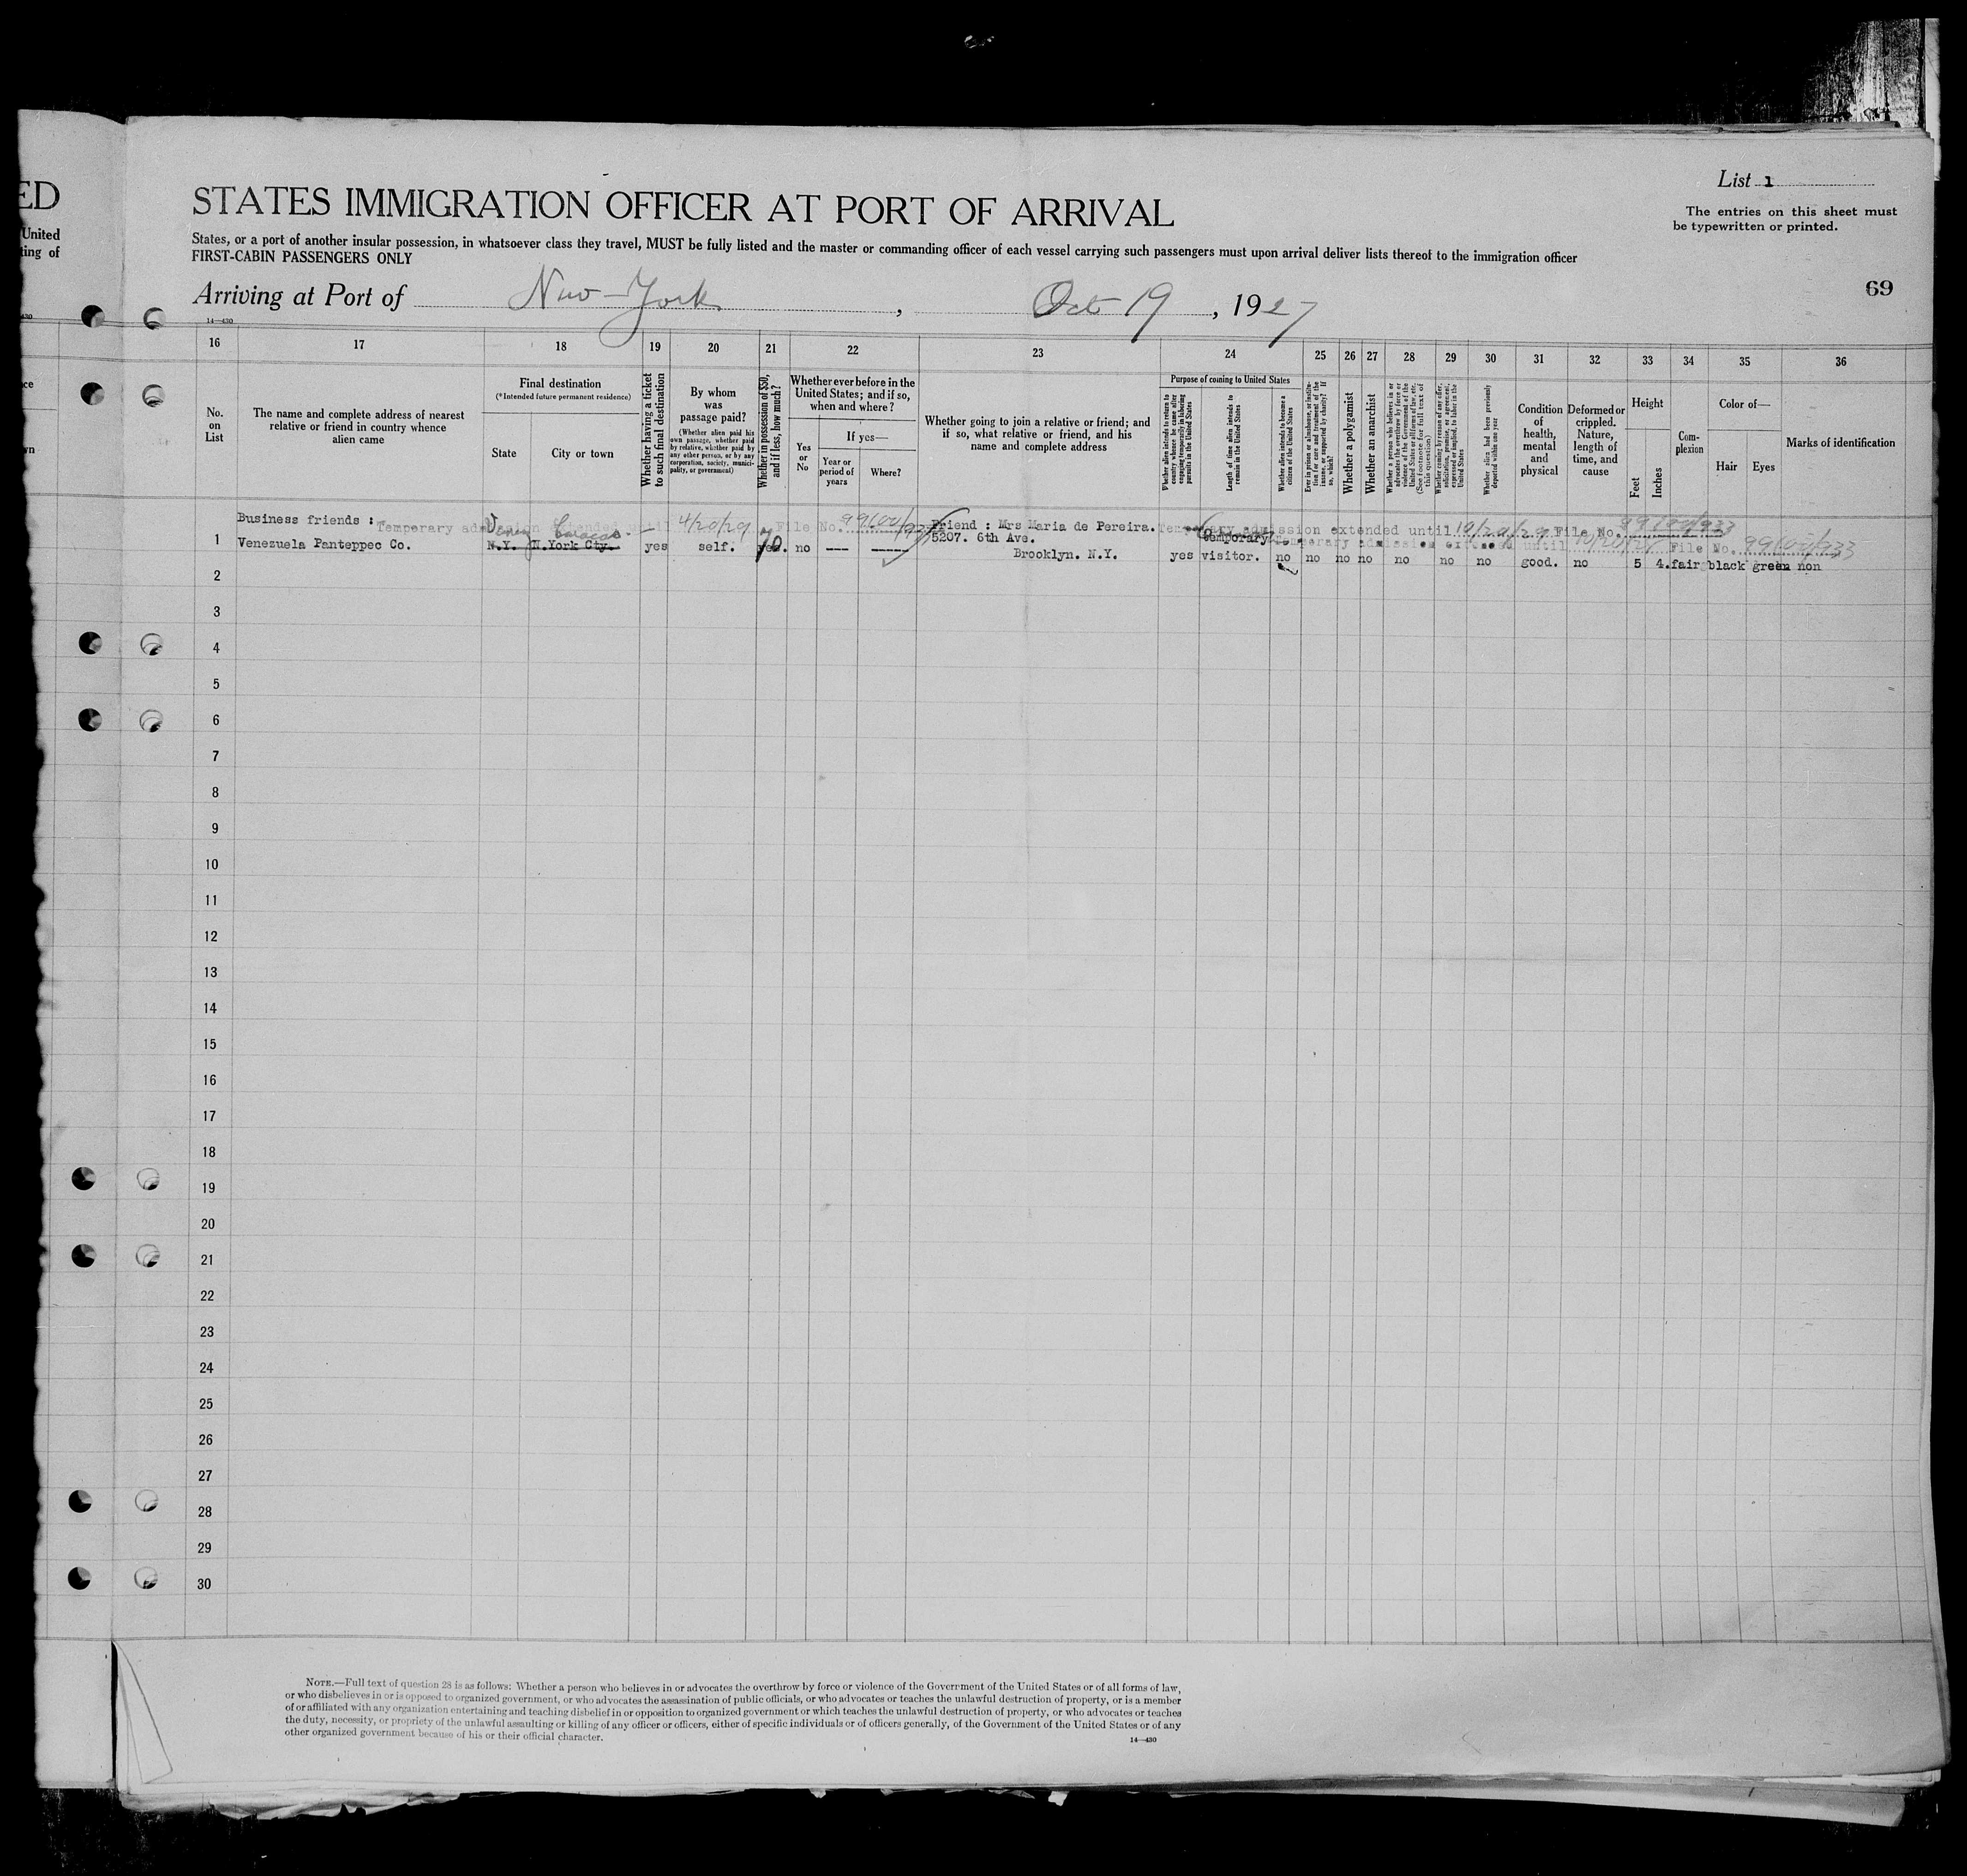 ED
STATES IMMIGRATION OFFICER AT PORT OF ARRIVAL
List 1
The entries on this sheet must
be typewritten or printed.
United
ing of
States, or a port of another insular possession, in whatsoever class they travel, MUST be fully listed and the master or commanding officer of each vessel carrying such passengers must upon arrival deliver lists thereof to the immigration officer
FIRST-CABIN PASSENGERS ONLY
Arriving at Port of New-York, Oct 19, 1927
69
14—430
16 17 18 19 20 21 22 23 24 25 26 27 28 29 30 31 32 33 34 35 36
No.
on
List
The name and complete address of nearest
relative or friend in country whence
alien came
Final destination
(*Intended future permanent residence)
State
City or town
Whether having a ticket
to such final destination
By whom
was
passage paid?
(Whether alien paid his
own passage, whether paid
by relative, whether paid by
any other person, or by any
corporation, society, munici-
pality, or government)
Whether in possession of $50,
and if less, how much?
Whether ever before in the
United States; and if so,
when and where?
Yes
or
No
If yes—
Year or
period of
years
Where?
Whether going to join a relative or friend; and
if so, what relative or friend, and his
name and complete address
Purpose of coming to United States
Whether alien intends to return to
country whence he came after
engaging temporarily in laboring
pursuits in the United States
Length of time alien intends to
remain in the United States
Whether alien intends to become a
citizen of the United States
Ever in prison or almshouse, or institu-
tion for care and treatment of the
insane, or supported by charity? If
so, which?
Whether a polygamist
Whether an anarchist
Whether a person who believes in or
advocates the overthrow by force or
violence of the Government of the
United States or all forms of law, etc.
(See footnote for full text of
this question)
Whether coming by reason of any offer,
solicitation, promise, or agreement,
expressed or implied, to labor in the
United States
Whether alien had been previously
deported within one year
Condition
of
health,
mental
and
physical
Deformed or
crippled.
Nature,
length of
time, and
cause
Height
Feet
Inches
Com-
plexion
Color of—
Hair
Eyes
Marks of identification
Business friends :
Temporary admission extended until 4/20/29 File No. 99/02/933
Venez Caracas
Friend : Mrs Maria de Pereira.
Temporary admission extended until 10/20/29 File No. 99/02/933
1 Venezuela Panteppec Co. N.Y. N.York Cty. yes self. yes. 70 no --- ----
5207. 6th Ave.
temporary
Temporary admission extended until File No. 99/02/933
Brooklyn. N.Y. yes visitor. no no no no no no no good. no 5 4. fair black green non
2
3
4
5
6
7
8
9
10
11
12
13
14
15
16
17
18
19
20
21
22
23
24
25
26
27
28
29
30
NOTE.—Full text of question 28 is as follows: Whether a person who believes in or advocates the overthrow by force or violence of the Government of the United States or of all forms of law,
or who disbelieves in or is opposed to organized government, or who advocates the assassination of public officials, or who advocates or teaches the unlawful destruction of property, or is a member
of or affiliated with any organization entertaining and teaching disbelief in or opposition to organized government or which teaches the unlawful destruction of property, or who advocates or teaches
the duty, necessity, or propriety of the unlawful assaulting or killing of any officer or officers, either of specific individuals or of officers generally, of the Government of the United States or of any
other organized government because of his or their official character.
14—430